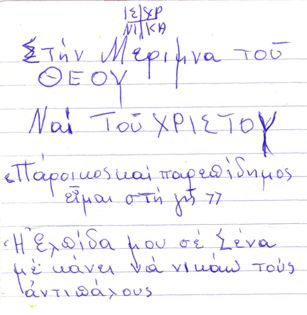 ΙΣ ΧΡ
ΝΙ ΚΑ
Στήν Μεριμνα τού
ΘΕΟΥ
Ναί ΤοΥ ΧΡΙΣΤΟΥ
«Πάροικος καί παρεπίδημος
εἶμαι στή γῆ»
«Ἡ Ἐλπίδα μου σέ Σένα
μέ κάνει νά νικάω τούς
ἀντιπάλους